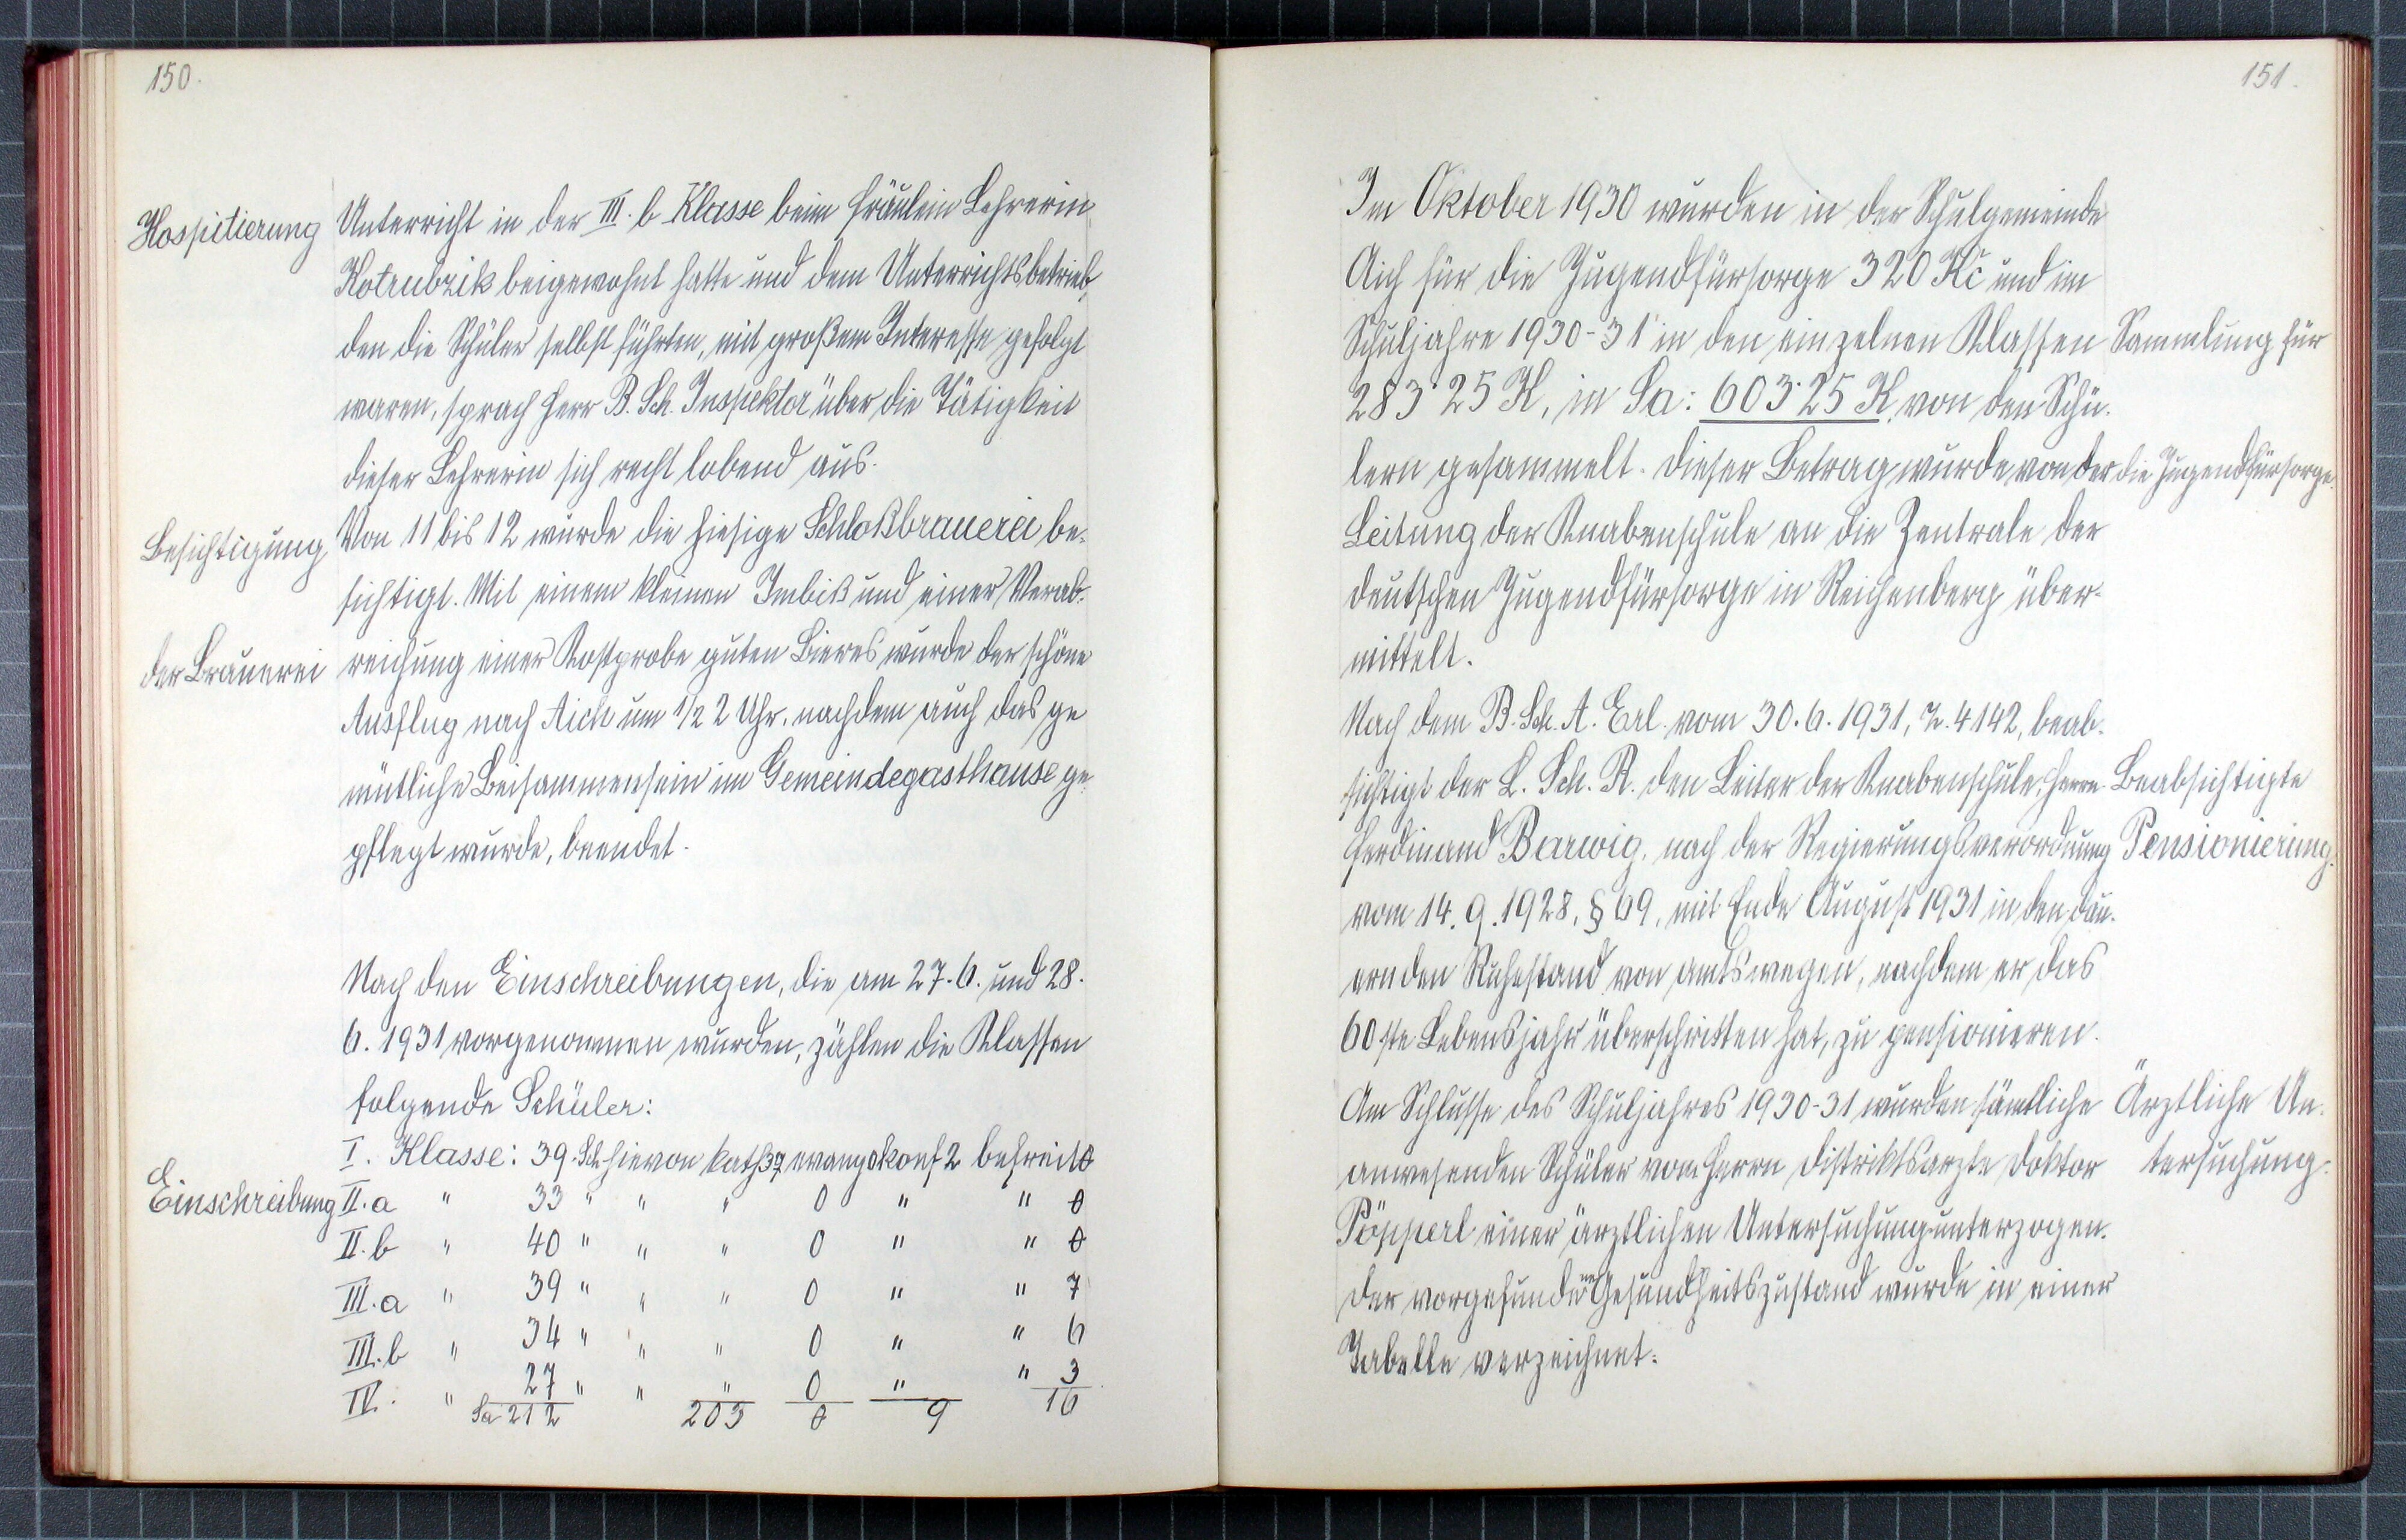 150.
Hospitierung
Unterricht in der III. b Klasse beim Fräulein Lehrerin
Kotrubzik beigewohnt hatte und dem Unterrichtsbetrieb,
den die Schüler selbst führten, mit großem Interesse gefolgt
waren, sprach Herr B. Sch. Inspektor über die Tätigkeit
dieser Lehrerin sich recht lobend aus.
Besichtigung
Von 11 bis 12 wurde die hiesige Schloßbrauerei be-
sichtigt. Mit einem kleinen Imbiß und einer Verab-
der Brauerei
reichung einer Kostprobe guten Bieres wurde der schöne
Ausflug nach Aich um 1/2 2 Uhr, nachdem auch das ge
mütliche Beisammensein im Gemeindegasthause ge-
pflegt wurde, beendet.
Nach den Einschreibungen, die am 27. 6. und 28.
6. 1931 vorgenommen wurden, zählen die Klassen
folgende Schüler:
I. Klasse: 39 Sch hievon kath 37 evang 0 konf 2 befreit 0
Einschreibung
II. a " 33 " " " 0 " " 0
II. b " 40 " " " 0 " " 0
III. a " 39 " " " 0 " " 7
III. b " 34 " " " 0 " " 6
IV. " 27 " " " 0 " " 3
Sa 212 203 0 9 16
151.
Im Oktober 1930 wurden in der Schulgemeinde
Aich für die Jugendfürsorge 320 Kč und im
Schuljahre 1930-31 in den einzelnen Klassen
Sammlung für
283·25 K, in Sa: 603·25 K von den Schü-
lern gesammelt. Dieser Betrag wurde von der
die Jugendfürsorge.
Leitung der Knabenschule an die Zentrale der
deutschen Jugendfürsorge in Reichenberg über-
mittelt.
Nach dem B. Sch. A. Erl. vom 30. 6. 1931, Z. 4142, beab-
sichtigt der L. Sch. R. den Leiter der Knabenschule, Herrn
Beabsichtigte
Ferdinand Barwig, nach der Regierungsverordnung
Pensionierung.
vom 14. 9. 1928, § 69, mit Ende August 1931 in den dau-
ernden Ruhestand von amtswegen, nachdem er das
60ste Lebensjahr überschritten hat, zu pensionieren.
Am Schlusse des Schuljahres 1930-31 wurden sämtliche
Ärztliche Un-
anwesenden Schüler vom Herrn Distriktsarzte Doktor
tersuchung.
Pöpperl einer ärztlichen Untersuchung unterzogen.
Der vorgefundene Gesundheitszustand wurde in einer
Tabelle verzeichnet.